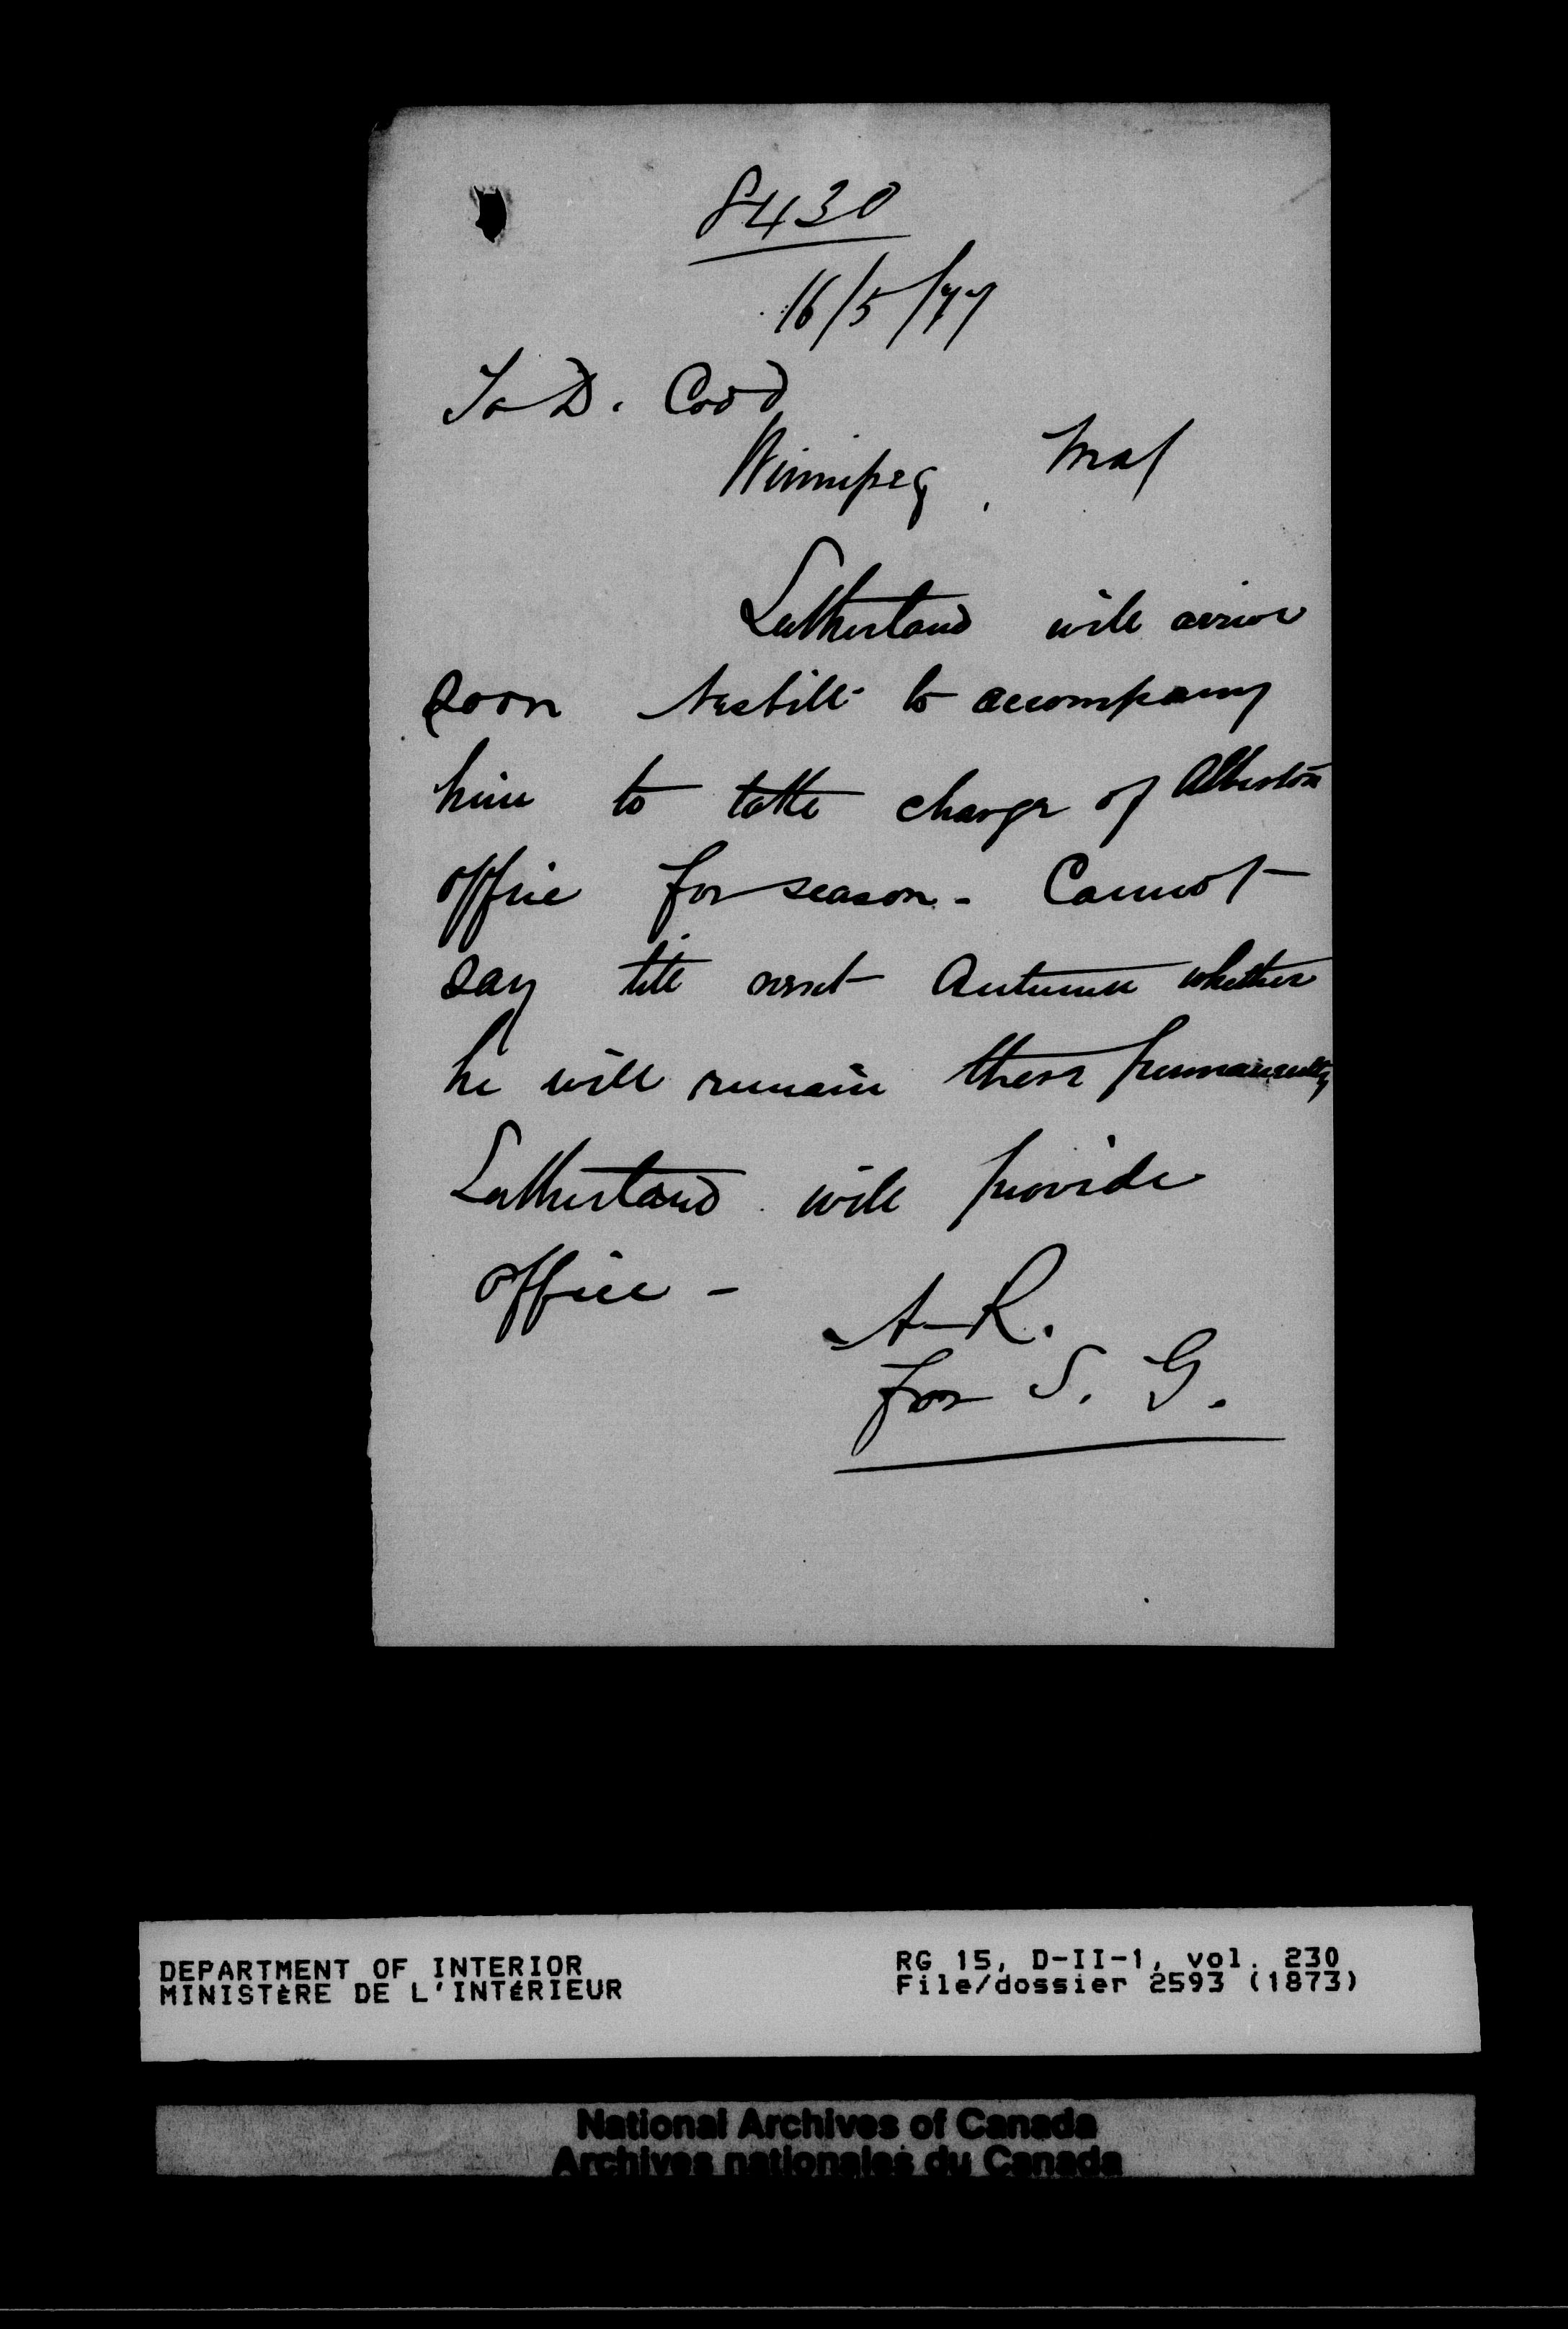 8430
16/5/77
To D. Codd
Winnipeg, Ma
Sutherland will arrive
soon Nesbitt to accompany
him to take charge of
office for season - Cannot
say till next Autumn whether
he will remain there permanently
Sutherland will provide
office -
A-R.
for S. G.
DEPARTMENT OF INTERIOR
MINISTÈRE DE L'INTÉRIEUR
RG 15, D-II-1, vol. 230
File/dossier 2593 (1873)
National Archives of Canada
Archives nationales du Canada